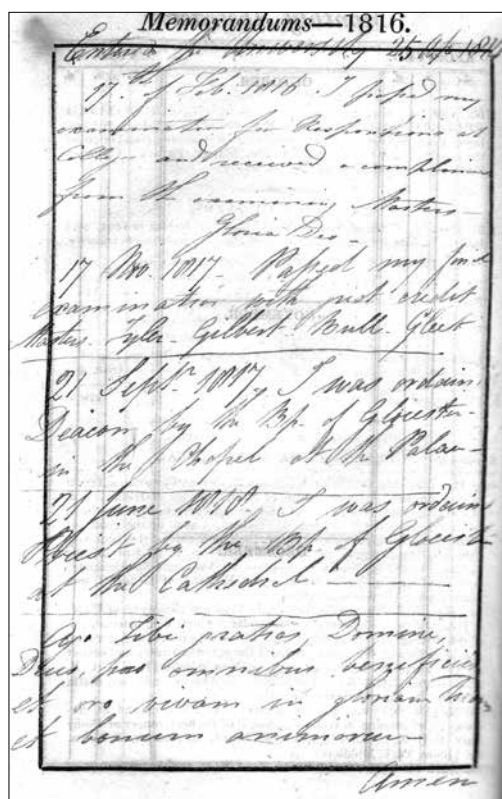 Memorandums—1816.
Entered the University 25 Ap. 181
17th of Feb. 1816 I passed my
examination for Responsions at
College and received a complime
from the examining Masters—
Gloria Deo—
17 Nov. 1817— Passed my final
examination with credit
Masters Tyler— Gilbert— Bull—
21 Septr. 1817, I was ordain
Deacon by the Bp. of Glocester—
in the Chapel at the Palace—
21 June 1818. I was ordain
Priest by the Bp. of Glocest
at the Cathedral.——
Ago Tibi gratias, Domine,
Deus, pro omnibus beneficiis
et oro vivam in gloriam Tuam
et bonum animarum—
Amen